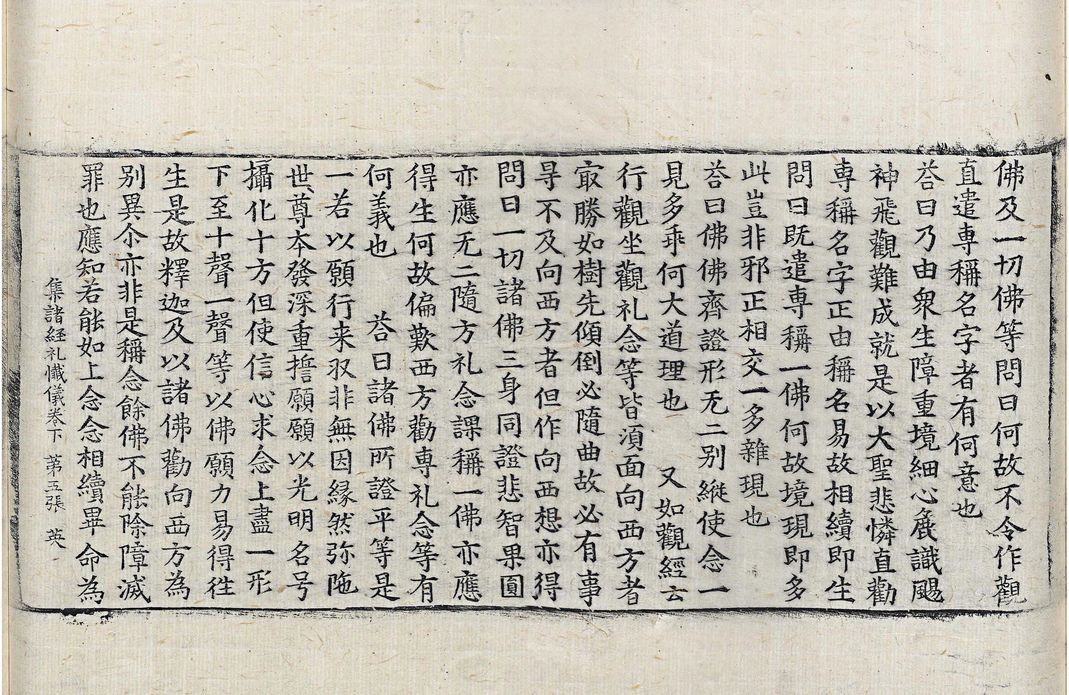 佛及一切佛等問曰何故不令作觀
直遣専稱名字者有何意也
荅曰乃由衆生障重境細心麁識颺
神飛觀難成就是以大聖悲憐直勸
専稱名字正由稱名易故相續即生
問曰既遣専稱一佛何故境現即多
此豈非邪正相交一多雜現也
荅曰佛佛齊證形无二別縱使念一
見多乖何大道理也　又如觀經云
行觀坐觀礼念等皆湏面向西方者
㝡勝如樹先傾倒必隨曲故必有事
㝵不及向西方者但作向西想亦得
問曰一切諸佛三身同證悲智果圓
亦應无二隨方礼念課稱一佛亦應
得生何故偏歎西方勸専礼念等有
何義也　荅曰諸佛所證平等是
一若以願行来収非無因縁然弥陁
世尊本發深重誓願願以光明名号
攝化十方但使信心求念上盡一形
下至十聲一聲等以佛願力易得徃
生是故釋迦及以諸佛勸向西方為
別異尒亦非是稱念餘佛不能除障滅
罪也應知若能如上念念相續畢命為
集諸經礼懺儀卷下　第五張　英